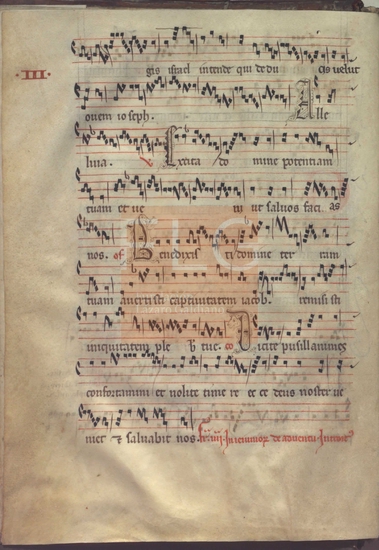 gis israel intende qui dedu cis velut
III.
ovem ioseph. Alle
luia. Excita do mine potentiam
tuam et ve ni ut salvos faci as
nos. of Benedixis ti domine ter ram
tuam avertisti captivitatem iacob. remisisti
iniquitatem ple b tue. co Dicite pusillanimes
confortamini et nolite time re ec ce deus noster ve
niet & salvabit nos.